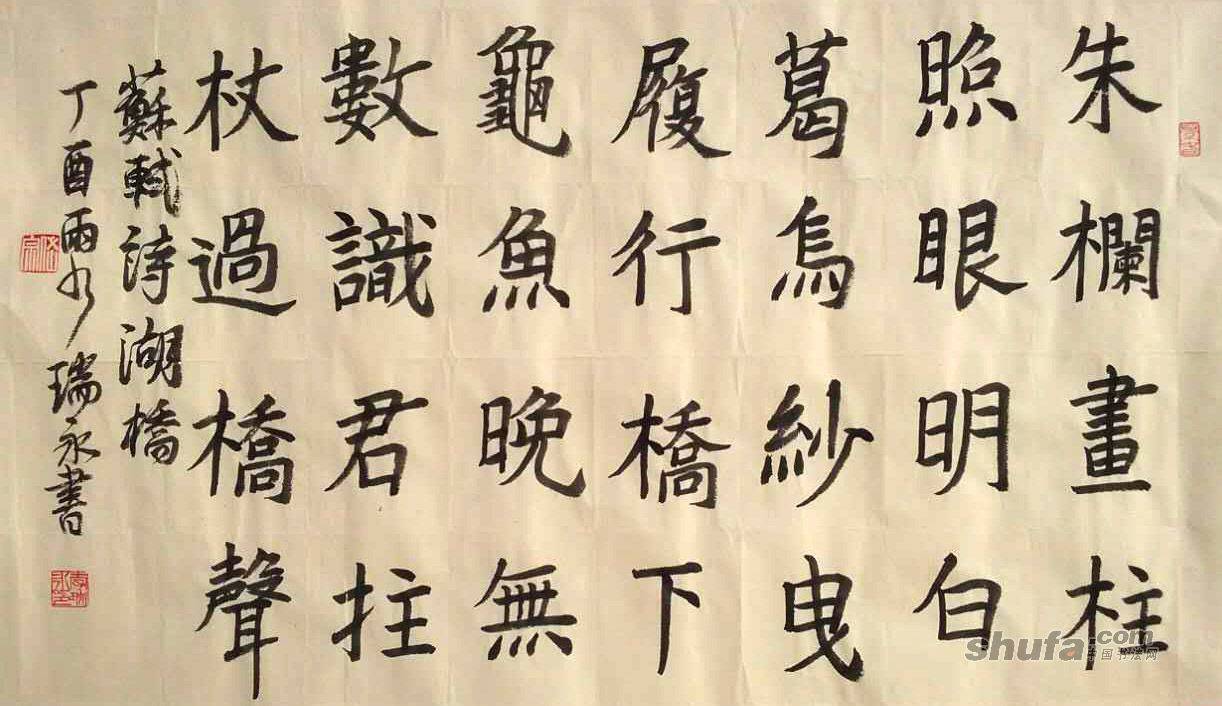 朱欄畫柱
照眼明白
葛烏紗曳
履行橋下
龜魚晚無
數識君拄
杖過橋聲
蘇軾詩湖橋
丁酉雨水瑞永書
shufa.com
中国书法网